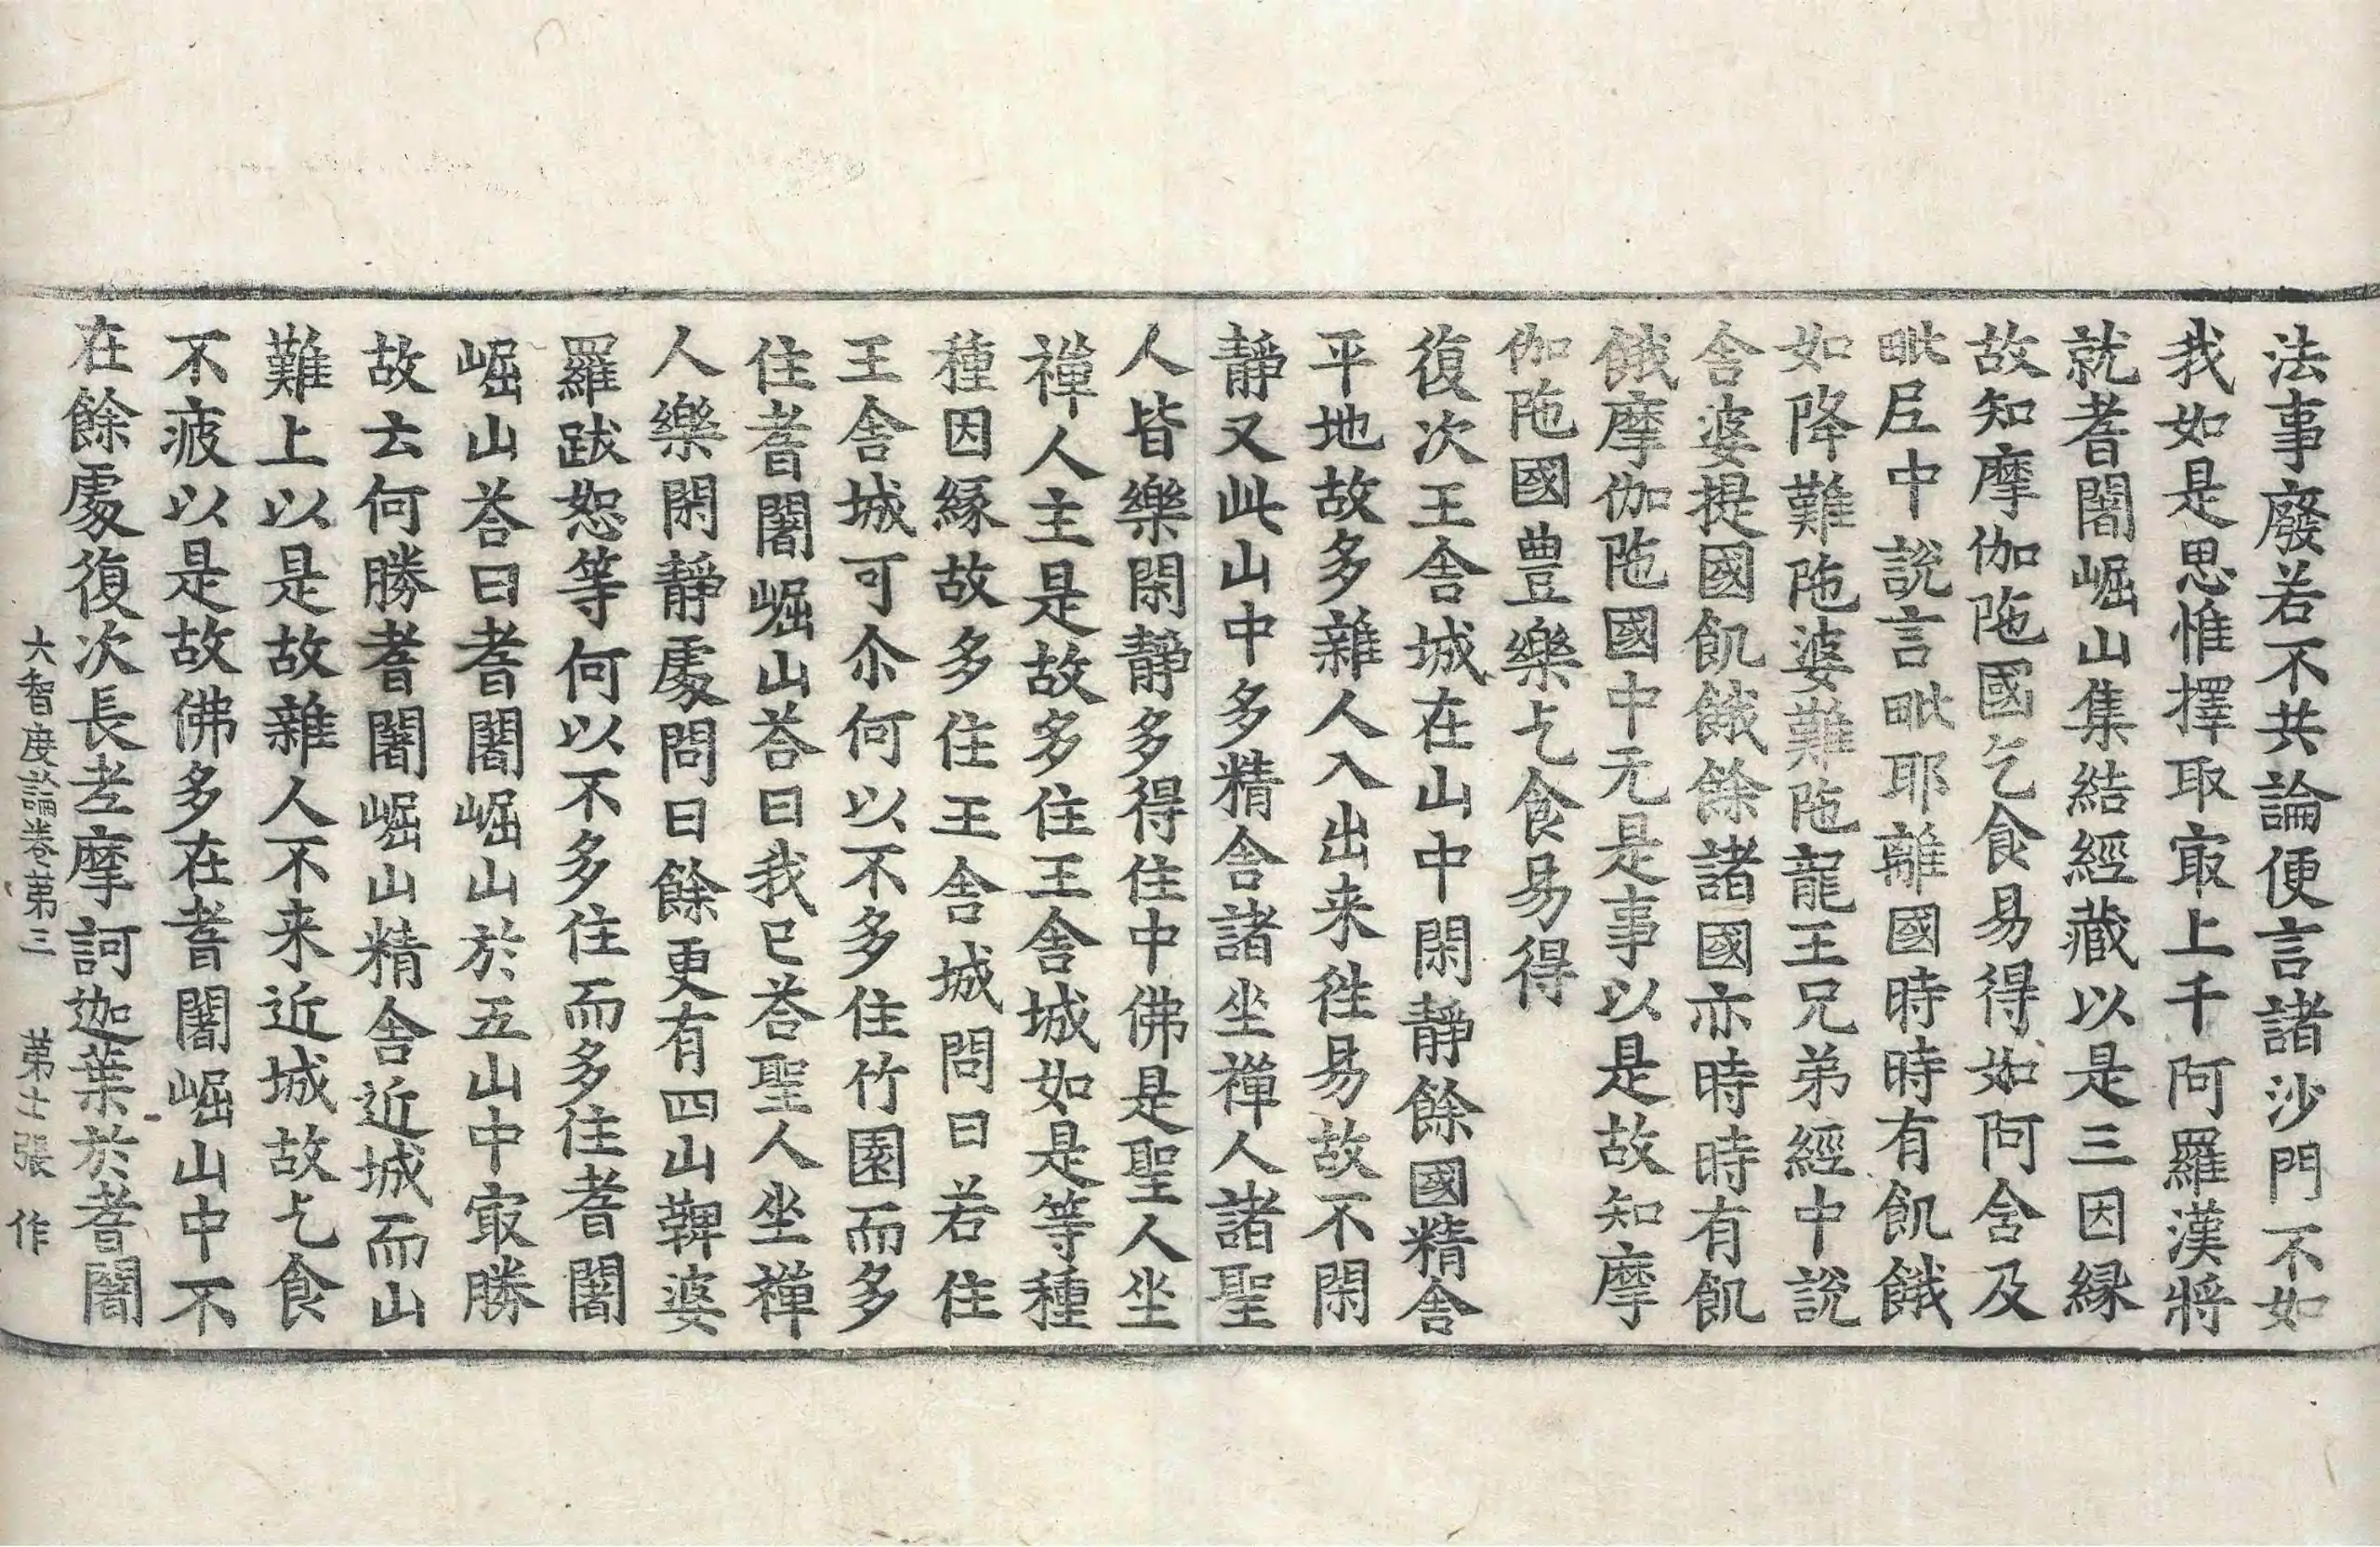 法事廢若不共論便言諸沙門不如
我如是思惟擇取㝡上千阿羅漢將
就耆闍崛山集結經藏以是三因緣
故知摩伽陁國乞食易得如阿含及
毗尼中說言毗耶離國時時有飢餓
如降難陁婆難陁龍王兄弟經中說
舍婆提國飢餓餘諸國亦時時有飢
餓摩伽陁國中无是事以是故知摩
伽陁國豊樂乞食易得
復次王舍城在山中閑靜餘國精舍
平地故多雜人入出来徃易故不閑
靜又此山中多精舍諸坐禪人諸聖
人皆樂閑靜多得住中佛是聖人坐
禪人主是故多住王舍城如是等種
種因緣故多住王舍城問曰若住
王舍城可尒何以不多住竹園而多
住耆闍崛山荅曰我已荅聖人坐禪
人樂閑靜處問曰餘更有四山鞞婆
羅跋恕等何以不多住而多住耆闍
崛山荅曰耆闍崛山於五山中㝡勝
故云何勝耆闍崛山精舍近城而山
難上以是故雜人不来近城故乞食
不疲以是故佛多在耆闍崛山中不
在餘處復次長老摩訶迦葉於耆闍
大智度論卷第三 第士張 作